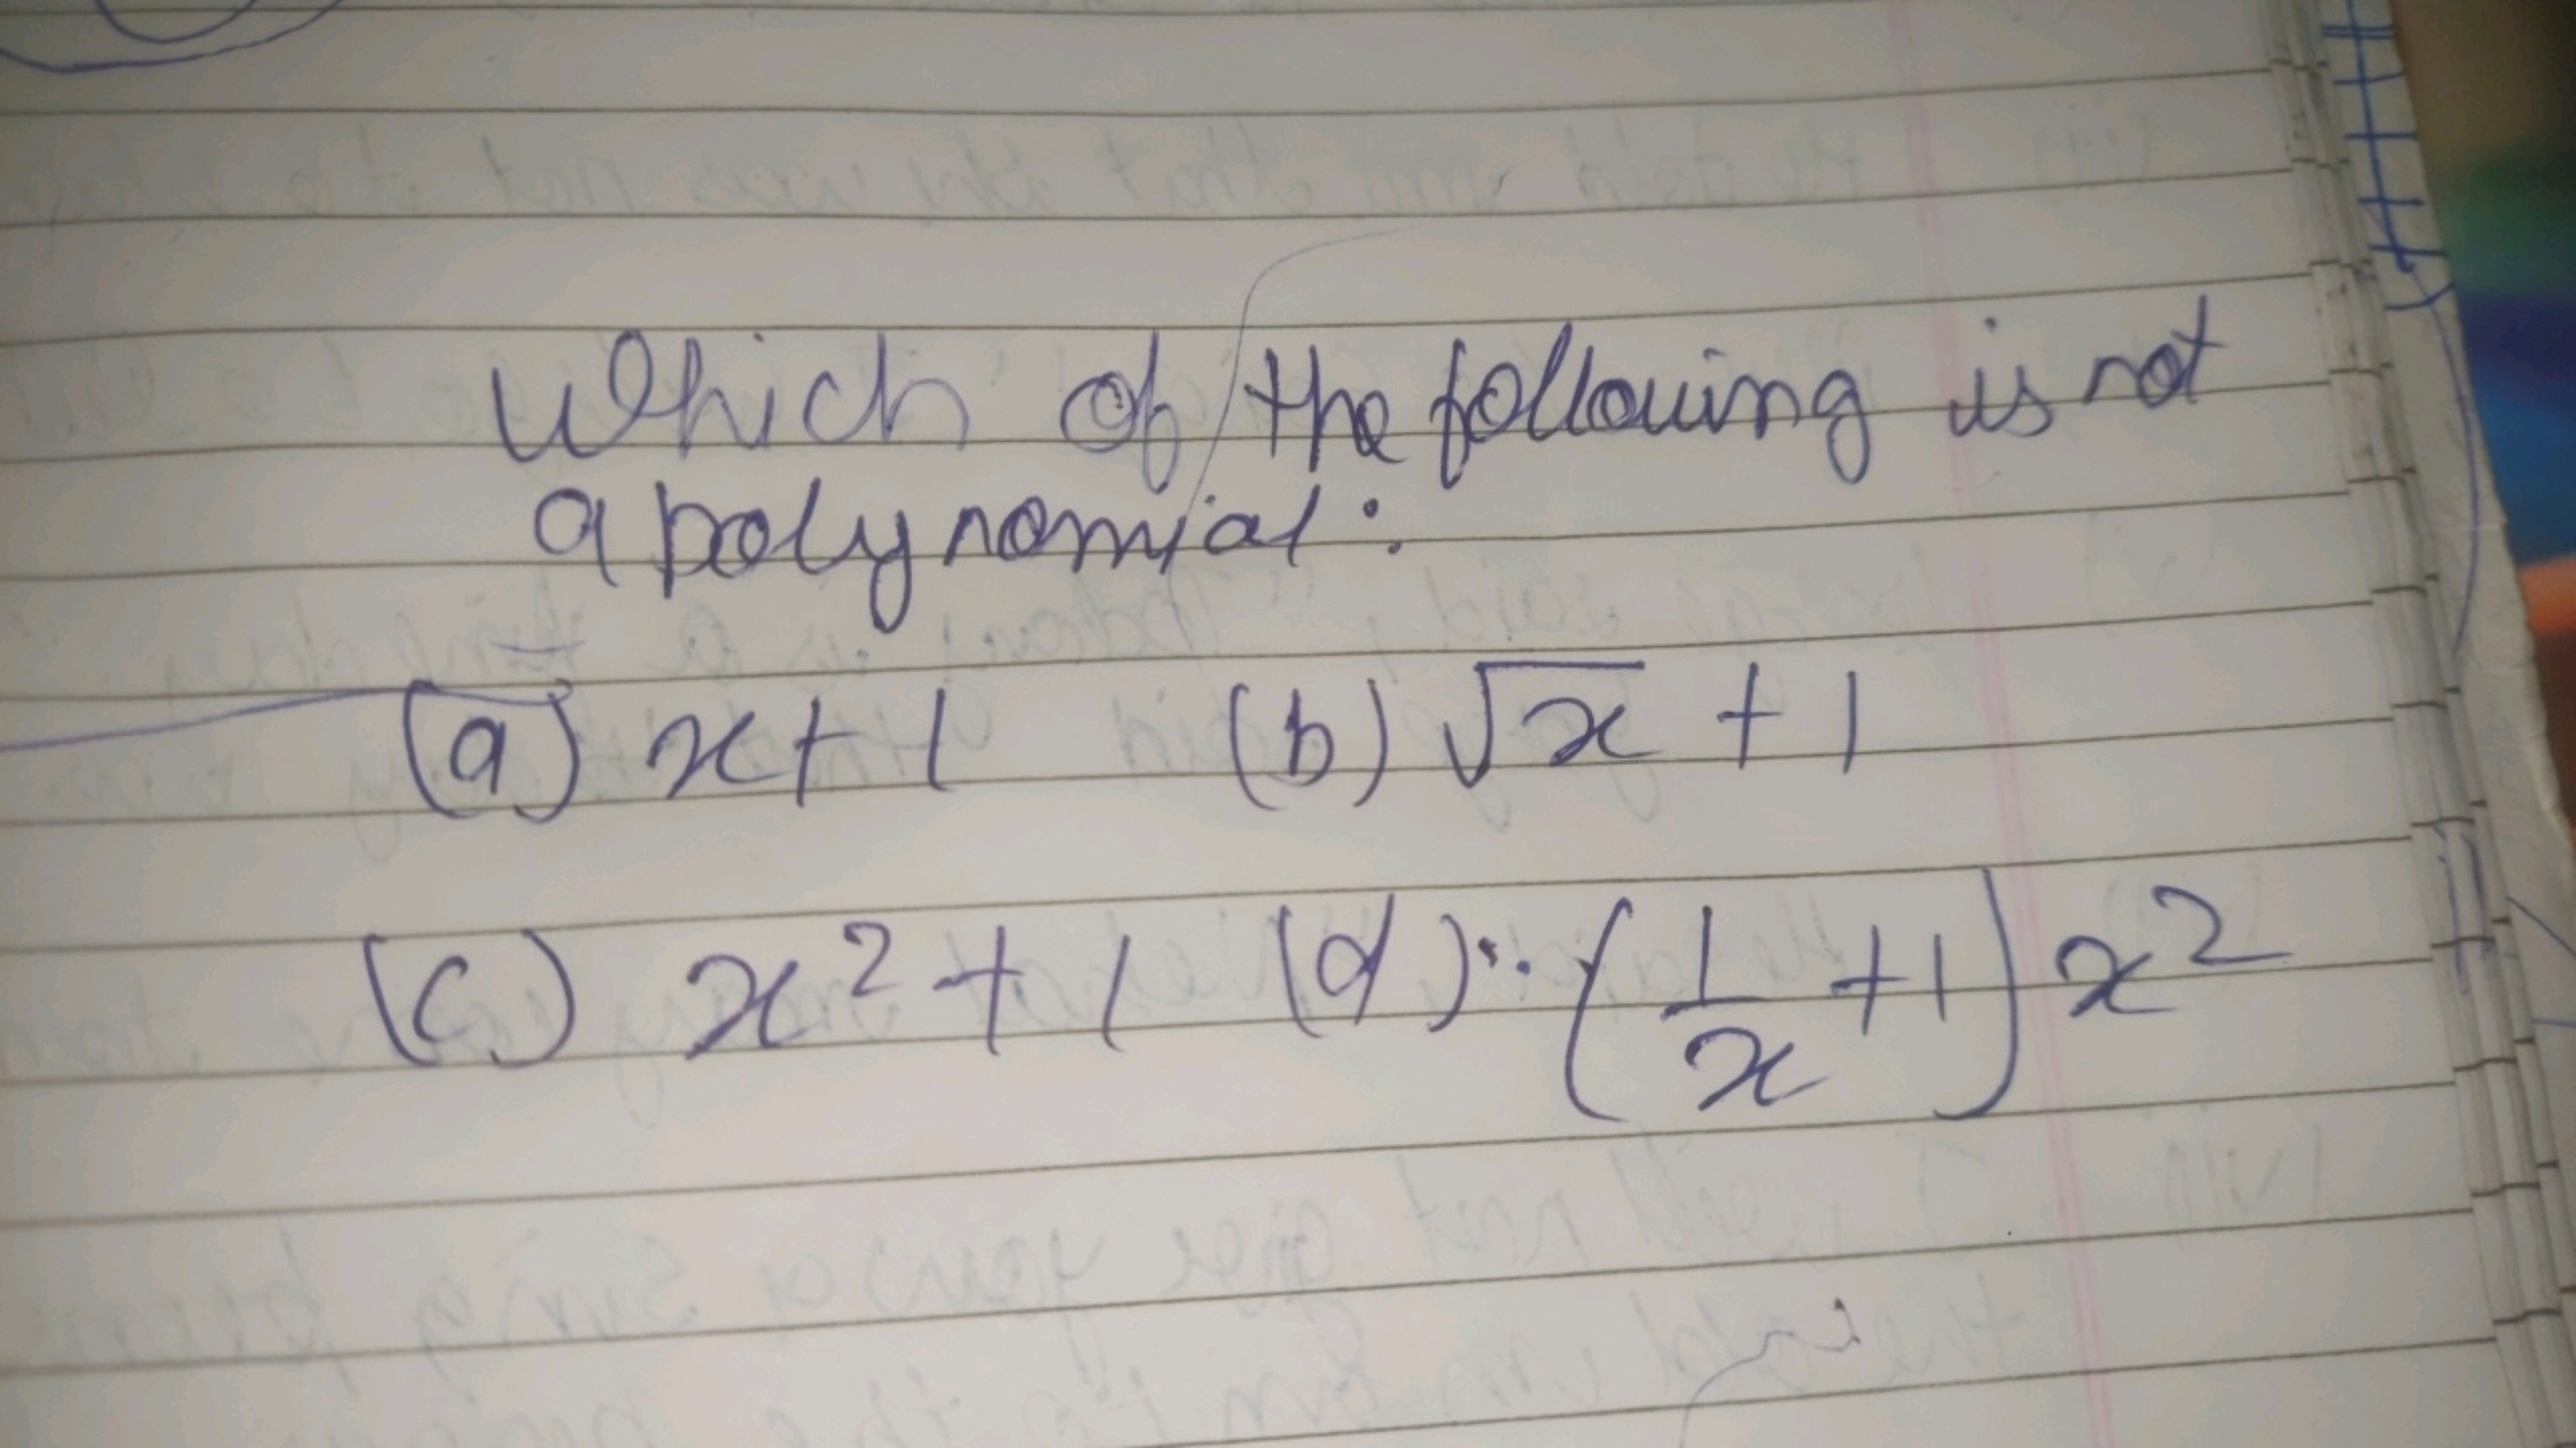 Which of the following is not
a polynomial :
(a) x+1 (b) √x + 1
(c) x² + 1 (d) (1/x +1) x²